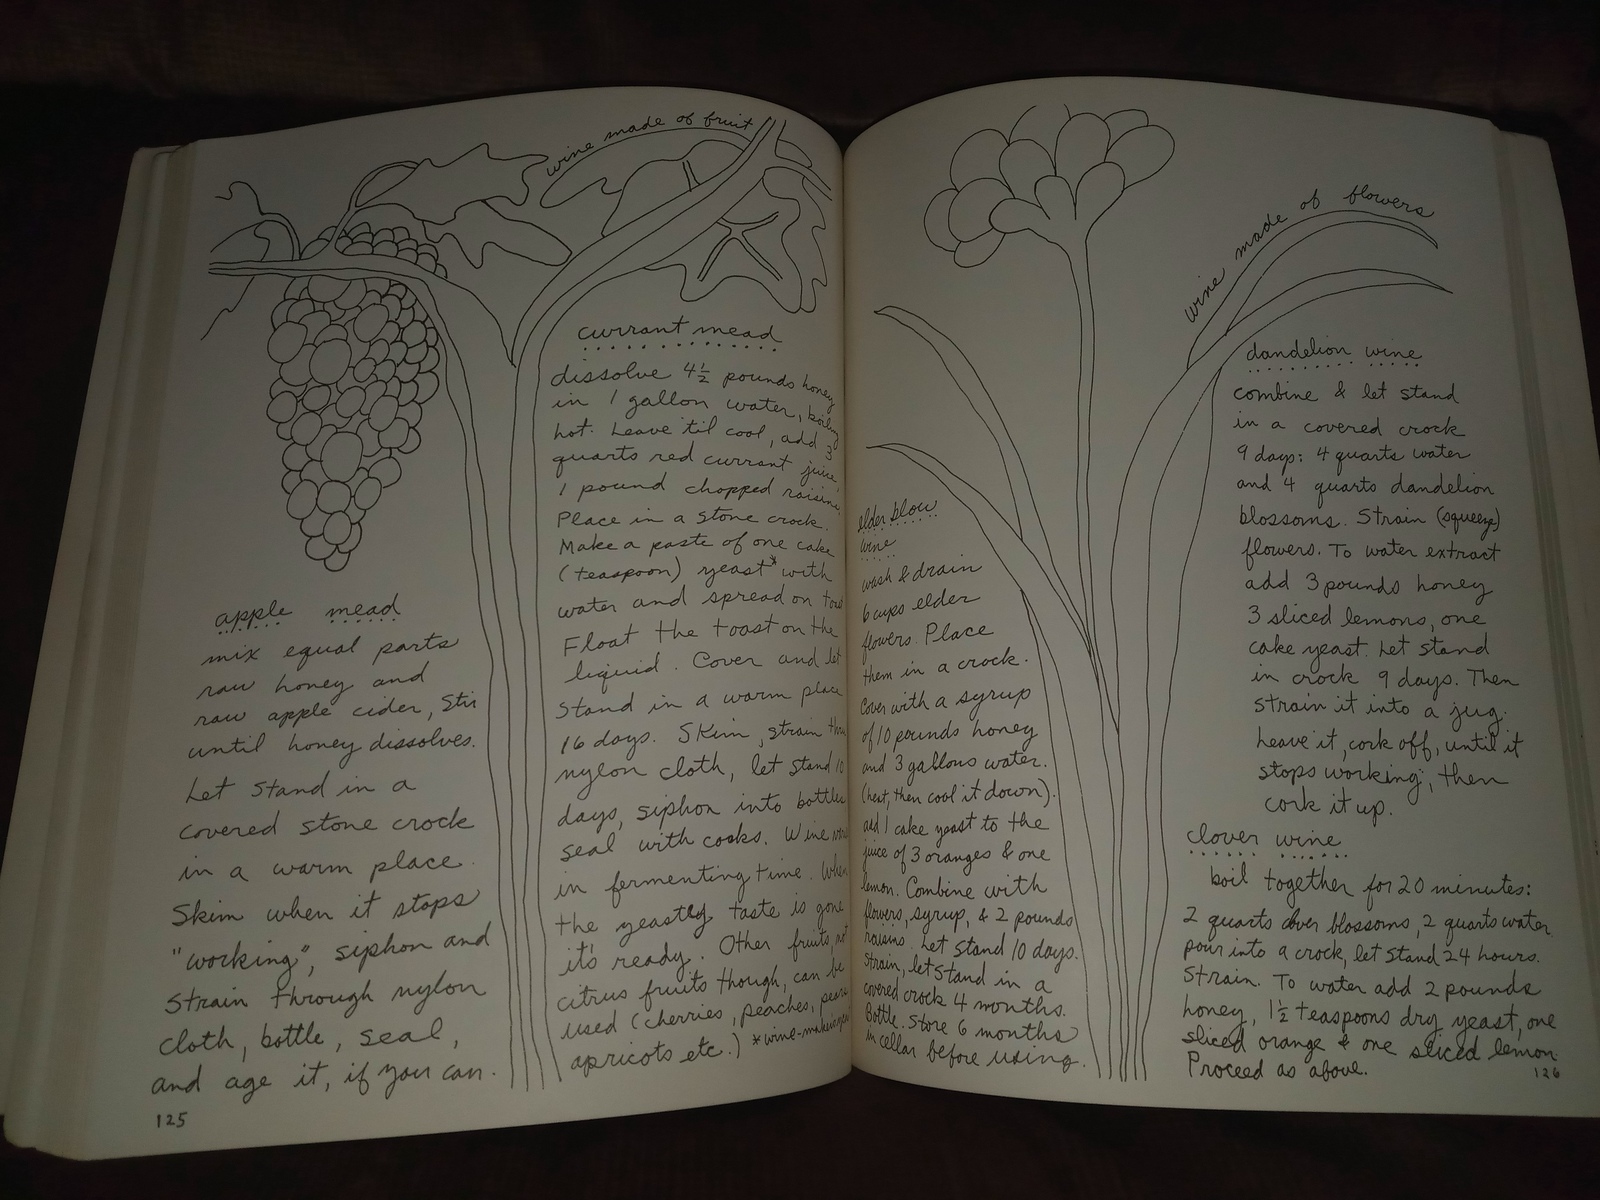 wine made of fruit
apple mead
mix equal parts
raw honey and
raw apple cider, Stir
until honey dissolves.
Let stand in a
covered stone crock
in a warm place.
Skim when it stops
"working", siphon and
strain through nylon
cloth, bottle, seal,
and age it, if you can.
125
currant mead
dissolve 4½ pounds honey
in 1 gallon water, boiling
hot. Leave til cool, add 3
quarts red currant juice,
1 pound chopped raisins.
Place in a stone crock.
Make a paste of one cake
(teaspoon) yeast* with
water and spread on
Float the toast on the
liquid. Cover and let
stand in a warm place
16 days. Skim, strain thru
nylon cloth, let stand 10
days, siphon into bottles
seal with corks. Wine
in fermenting time. When
the yeasty taste is gone
it's ready. Other fruits, not
citrus fruits though, can be
used (cherries, peaches, pears
apricots etc.) *wine-making
wine made of flowers
elder blow
wine
wash & drain
6 cups elder
flowers. Place
them in a crock.
Cover with a syrup
of 10 pounds honey
and 3 gallons water.
(heat, then cool it down).
add 1 cake yeast to the
juice of 3 oranges & one
lemon. Combine with
flowers, syrup, & 2 pounds
raisins. Let stand 10 days.
strain, let stand in a
covered crock 4 months.
Bottle. Store 6 months
in cellar before using.
dandelion wine
combine & let stand
in a covered crock
9 days: 4 quarts water
and 4 quarts dandelion
blossoms. Strain (squeeze)
flowers. To water extract
add 3 pounds honey
3 sliced lemons, one
cake yeast. Let stand
in crock 9 days. Then
strain it into a jug.
Leave it, cork off, until it
stops working, then
cork it up.
clover wine
boil together for 20 minutes:
2 quarts clover blossoms, 2 quarts water
pour into a crock, let stand 24 hours.
Strain. To water add 2 pounds
honey, 1½ teaspoons dry yeast, one
sliced orange & one sliced lemon
Proceed as above.
126